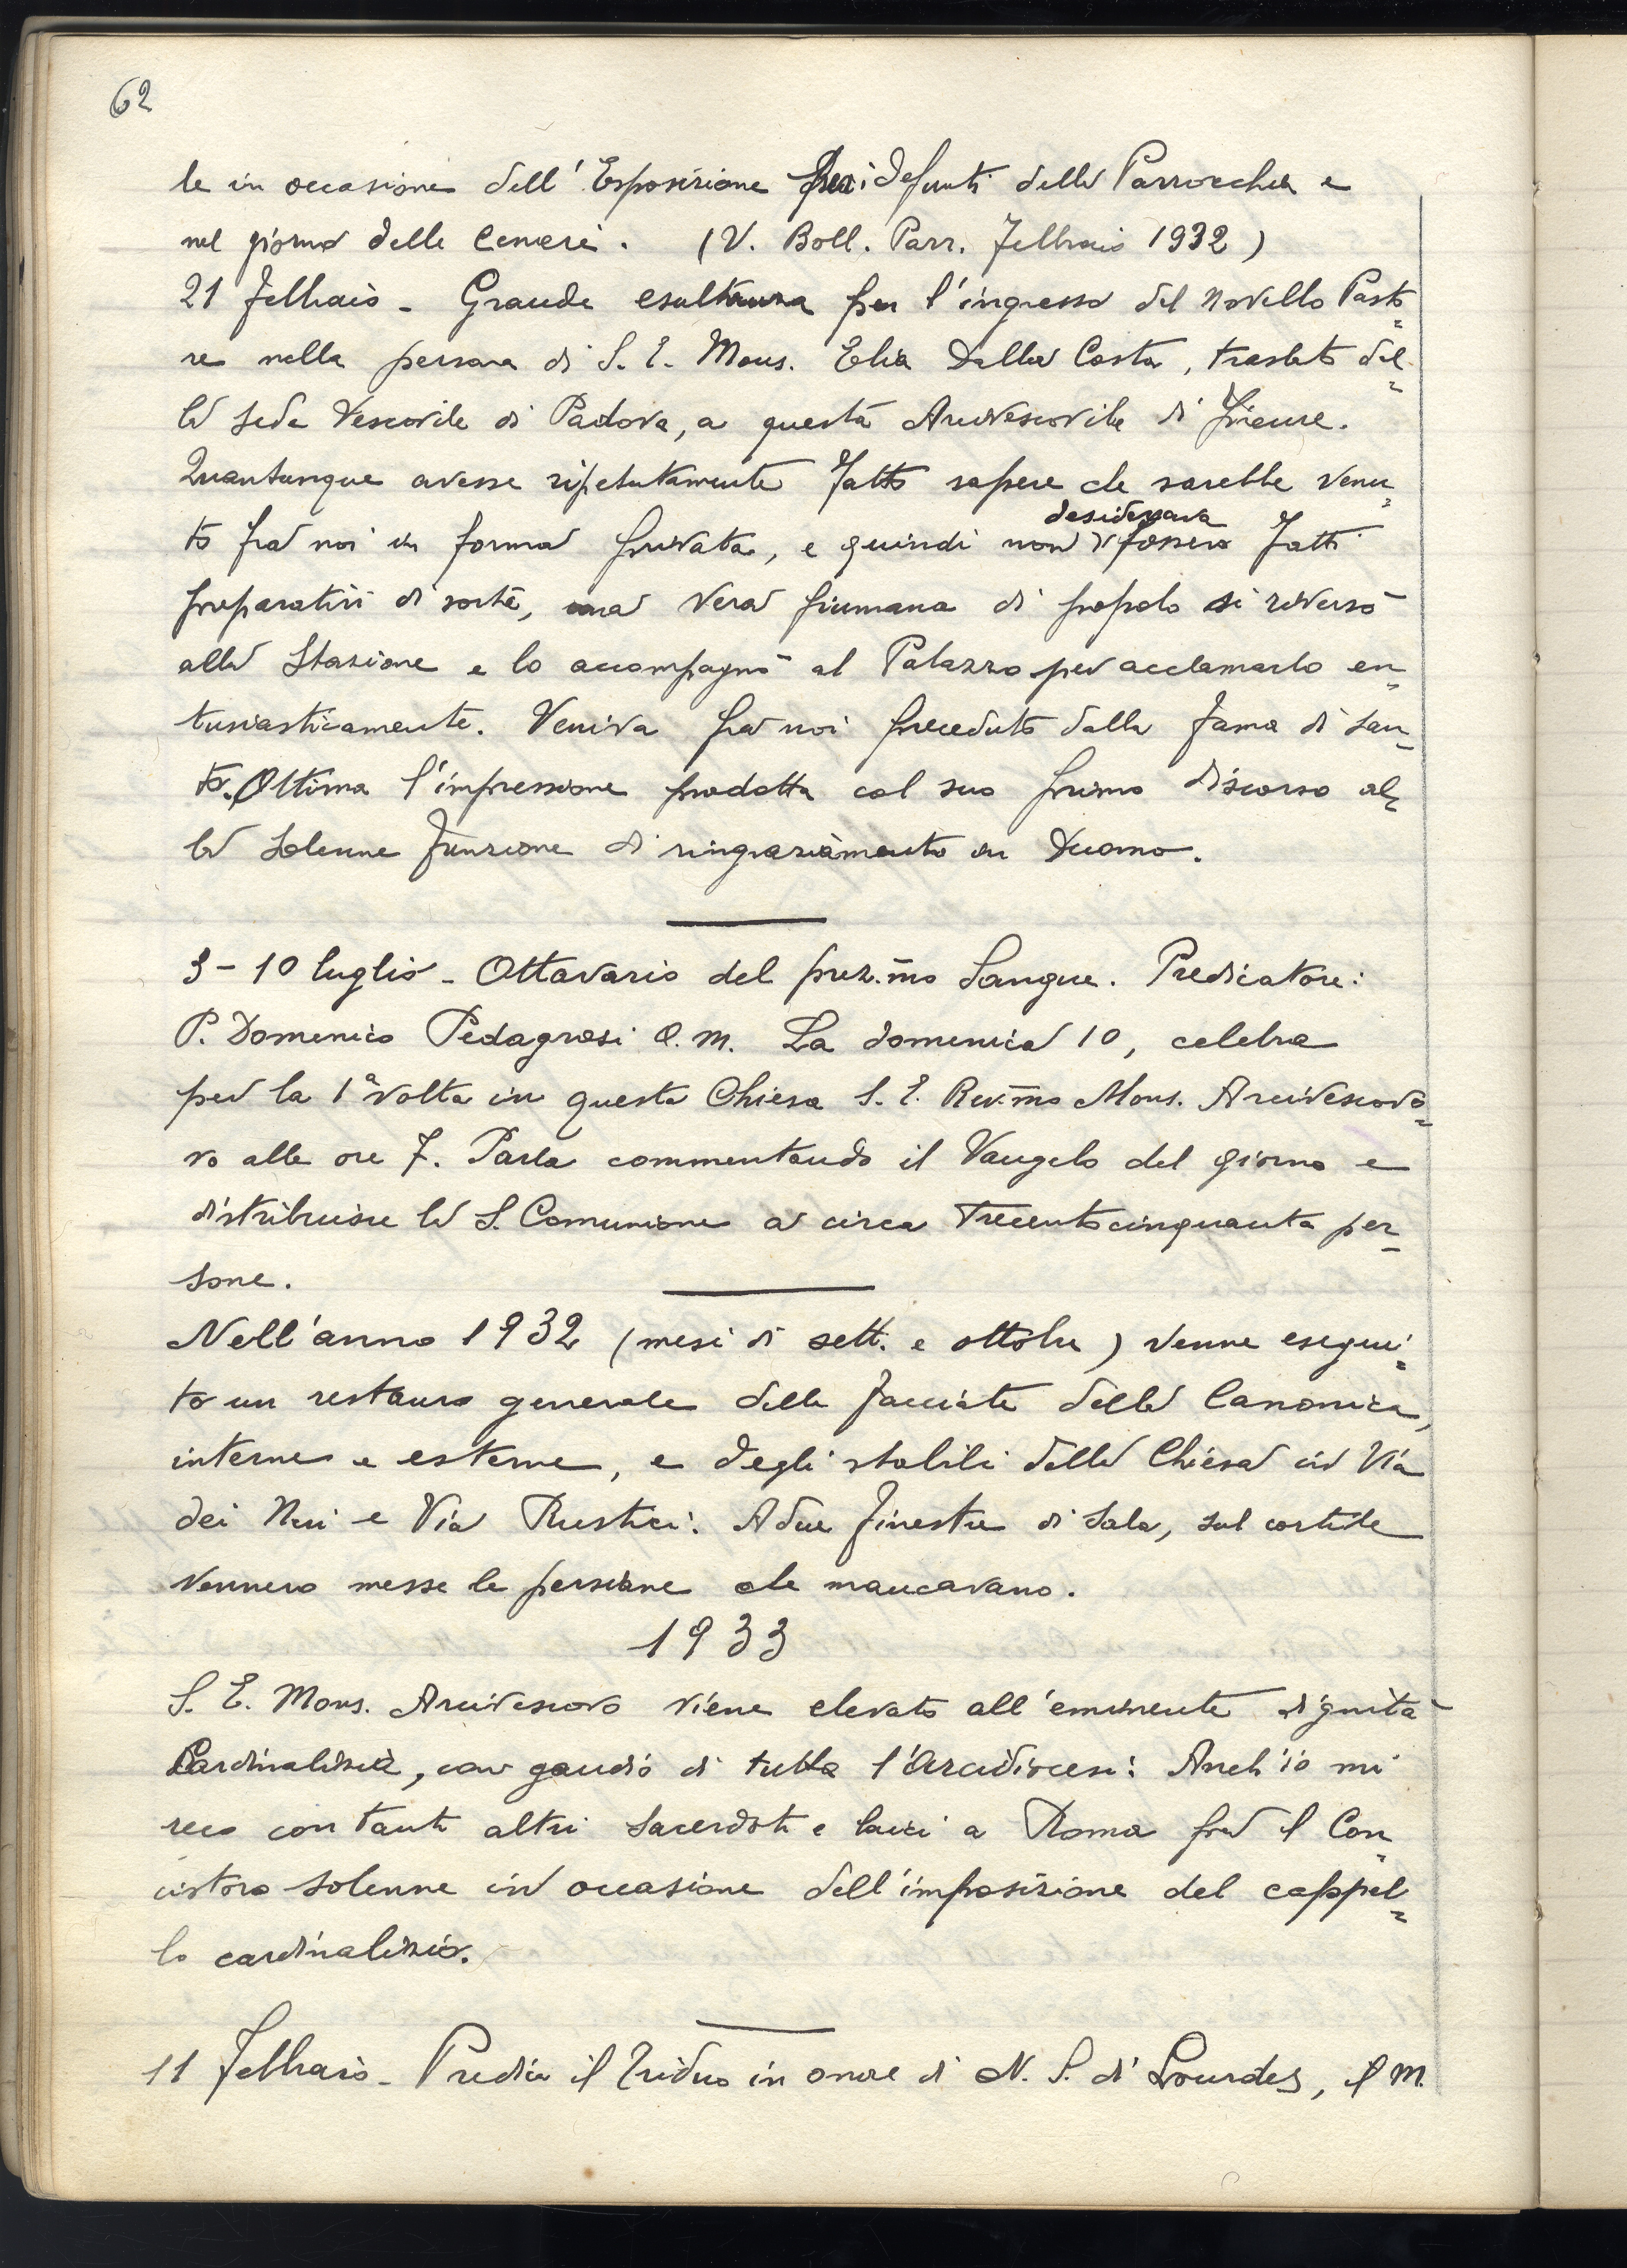 62
le in occasione dell'Esposizione per i defunti della Parrocchia e
nel giorno delle Ceneri. (V. Boll. Parr. Febbraio 1932)
21 Febbraio - Grande esultanza per l'ingresso del novello Pasto=
re nella persona di S. E. Mons. Elia Dalla Costa, traslato dal=
la sede Vescovile di Padova, a questa Arcivescovile di Firenze.
Quantunque avesse ripetutamente fatto sapere che sarebbe venu=
to fra noi in forma privata, e quindi non desiderava si fossero fatti
preparativi di sorta, una vera fiumana di popolo si riversò
alla Stazione e lo accompagnò al Palazzo per acclamarlo en=
tusiasticamente. Veniva fra noi preceduto dalla fama di San=
to. Ottima l'impressione prodotta col suo primo discorso al=
la solenne funzione di ringraziamento in Duomo.
3-10 luglio - Ottavario del prez.mo Sangue. Predicatore:
P. Domenico Pedagrosi O. M. La domenica 10, celebra
per la 1ª volta in questa Chiesa S. E. Rev.mo Mons. Arcivescovo=
vo alle ore 7. Parla commentando il Vangelo del giorno e
distribuisce la S. Comunione a circa trecentocinquanta per=
sone.
Nell'anno 1932 (mesi di sett. e ottobre) venne esegui=
to un restauro generale delle facciate della Canonica,
interne e esterne, e degli stabili della Chiesa in Via
dei Neri e Via Rustici. A due finestre di sala, sul cortile
vennero messe le persiane che mancavano.
1933
S. E. Mons. Arcivescovo viene elevato all'eminente dignità
Cardinalizia, con gaudio di tutta l'Arcidiocesi. Anch'io mi
reco con tanti altri sacerdoti e laici a Roma per il Con=
cistoro solenne in occasione dell'imposizione del cappel=
lo cardinalizio.
11 Febbraio - Predica il Triduo in onore di N. S. di Lourdes, il M.